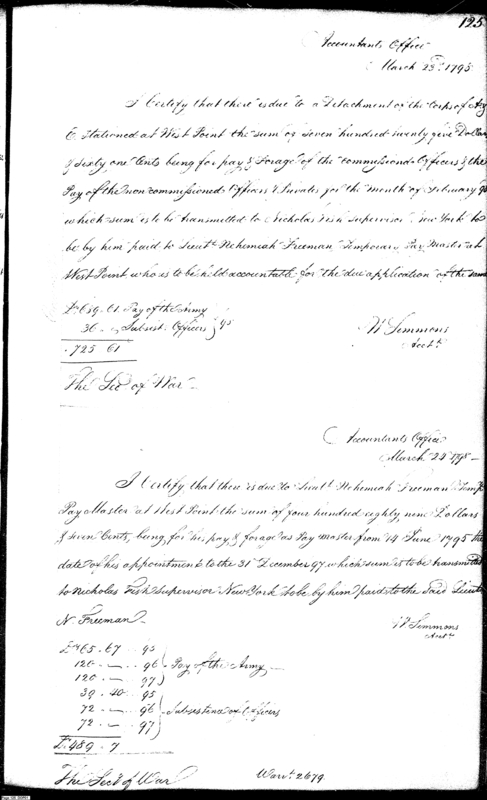 125
Accountants Office
March 23d. 1795
I Certify that there is due to a Detachment of the Corps of Arty
E. stationed at West Point the sum of seven hundred twenty five Dollars
& sixty one Cents being for pay & Forage of the commissiond Officers & the
Pay of the non commissioned Officers & Privates for the month of February 98
which sum is to be transmitted to Nicholas Fish Supervisor New York to
be by him paid to Lieut. Nehemiah Freeman Temporary Pay Master at
West Point, who is to be held accountable for the due application of the same
689. 61. Pay of the Army
36. — Subsist. Officers
725 61
W Simmons
Acct.
The Sec of War —
Accountants Office
March 24 1798 —
I Certify that there is due to Lieut. Nehemiah Freeman Temp
Pay Master at West Point the sum of four hundred eighty nine Dollars
& seven Cents, being for his pay & forage as Pay master from 14 June 1795 the
date of his appointment to the 31 December 97, which sum is to be transmitted
to Nicholas Fish Supervisor New York to be by him paid to the said Lieut
N. Freeman —
W Simmons
Acct.
65. 67 95
120 — 96 Pay of the Army —
120 — 97
39. 40 95
72 — 96 Subsistence of Officers
72 — 97
489. 7
The Sect. of War
Warrt. 2679